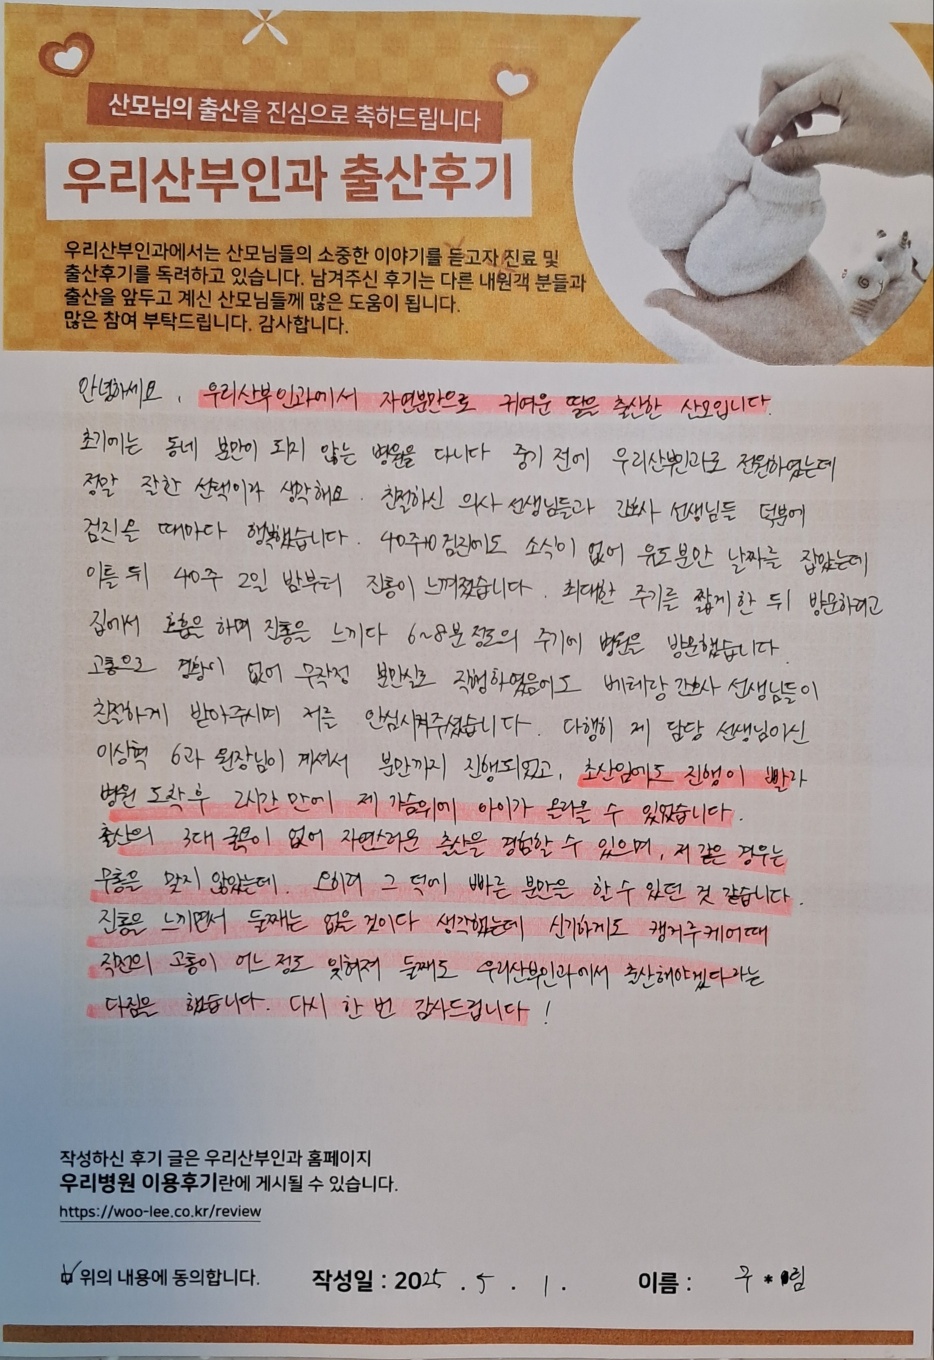 산모님의 출산을 진심으로 축하드립니다
우리산부인과 출산후기
우리산부인과에서는 산모님들의 소중한 이야기를 듣고자 진료 및
출산후기를 독려하고 있습니다. 남겨주신 후기는 다른 내원객 분들과
출산을 앞두고 계신 산모님들께 많은 도움이 됩니다.
많은 참여 부탁드립니다. 감사합니다.
안녕하세요, 우리산부인과에서 자연분만으로 귀여운 딸을 출산한 산모입니다.
초기에는 동네 분만이 되지 않는 병원을 다니다 중기 전에 우리산부인과로 전원하였는데
정말 잘한 선택이라 생각해요. 친절하신 의사 선생님들과 간호사 선생님들 덕분에
검진을 때마다 행복했습니다. 40주+0 검진에도 소식이 없어 유도분만 날짜를 잡았는데
이틀 뒤 40주 2일 밤부터 진통이 느껴졌습니다. 최대한 주기를 짧게 한 뒤 방문하려고
집에서 호흡을 하며 진통을 느끼다 6~8분 정도의 주기에 병원을 방문했습니다.
고통으로 경황이 없어 무작정 분만실로 직행하였음에도 베테랑 간호사 선생님들이
친절하게 받아주시며 저를 안심시켜주셨습니다. 다행히 제 담당 선생님이신
이상혁 6과 원장님이 계셔서 분만까지 진행되었고, 초산임에도 진행이 빨라
병원 도착 후 2시간 만에 제 가슴위에 아이가 올라올 수 있었습니다.
출산의 3대 굴욕이 없어 자연스러운 출산을 경험할 수 있으며, 저 같은 경우는
무통을 맞지 않았는데. 오히려 그 덕에 빠른 분만을 할 수 있던 것 같습니다.
진통을 느끼면서 둘째는 없을 것이다 생각했는데 신기하게도 캥거루케어때
직전의 고통이 어느 정도 잊혀져 둘째도 우리산부인과에서 출산해야겠다라는
다짐을 했습니다. 다시 한 번 감사드립니다!
작성하신 후기 글은 우리산부인과 홈페이지
우리병원 이용후기란에 게시될 수 있습니다.
https://woo-lee.co.kr/review
위의 내용에 동의합니다. 작성일 : 2025 . 5 . 1 . 이름 : 구 * 림